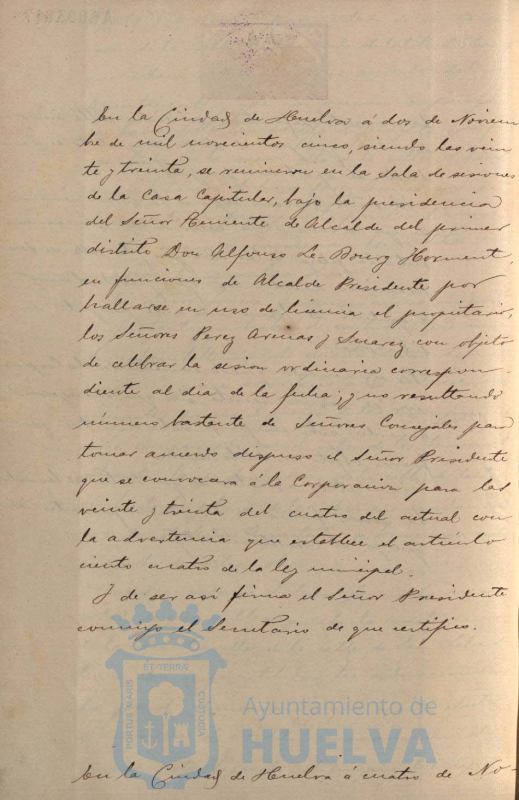 En la Ciudad de Huelva á dos de Noviem
bre de mil novecientos cinco, siendo las vein
te y treinta, se reunieron en la Sala de sesiones
de la Casa Capitular, bajo la presidencia
del Señor Teniente de Alcalde del primer
distrito Don Alfonso Le-Bourg Norment,
en funciones de Alcalde Presidente por
hallarse en uso de licencia el propietario,
los Señores Perez Arenas y Suarez con objeto
de celebrar la sesion ordinaria correspon-
diente al dia de la fecha; y no resultando
número bastante de Señores Concejales para
tomar acuerdo dispuso el Señor Presidente
que se convocara á la Corporacion para las
veinte y treinta del cuatro del actual con
la advertencia que establece el artículo
ciento cuatro de la ley municipal.
Y de ser así firma el Señor Presidente
conmigo el Secretario de que certifico.
ET TERRÆ
PORTUS MARIS
CUSTODIA
Ayuntamiento de
HUELVA
En la Ciudad de Huelva á cuatro de No-